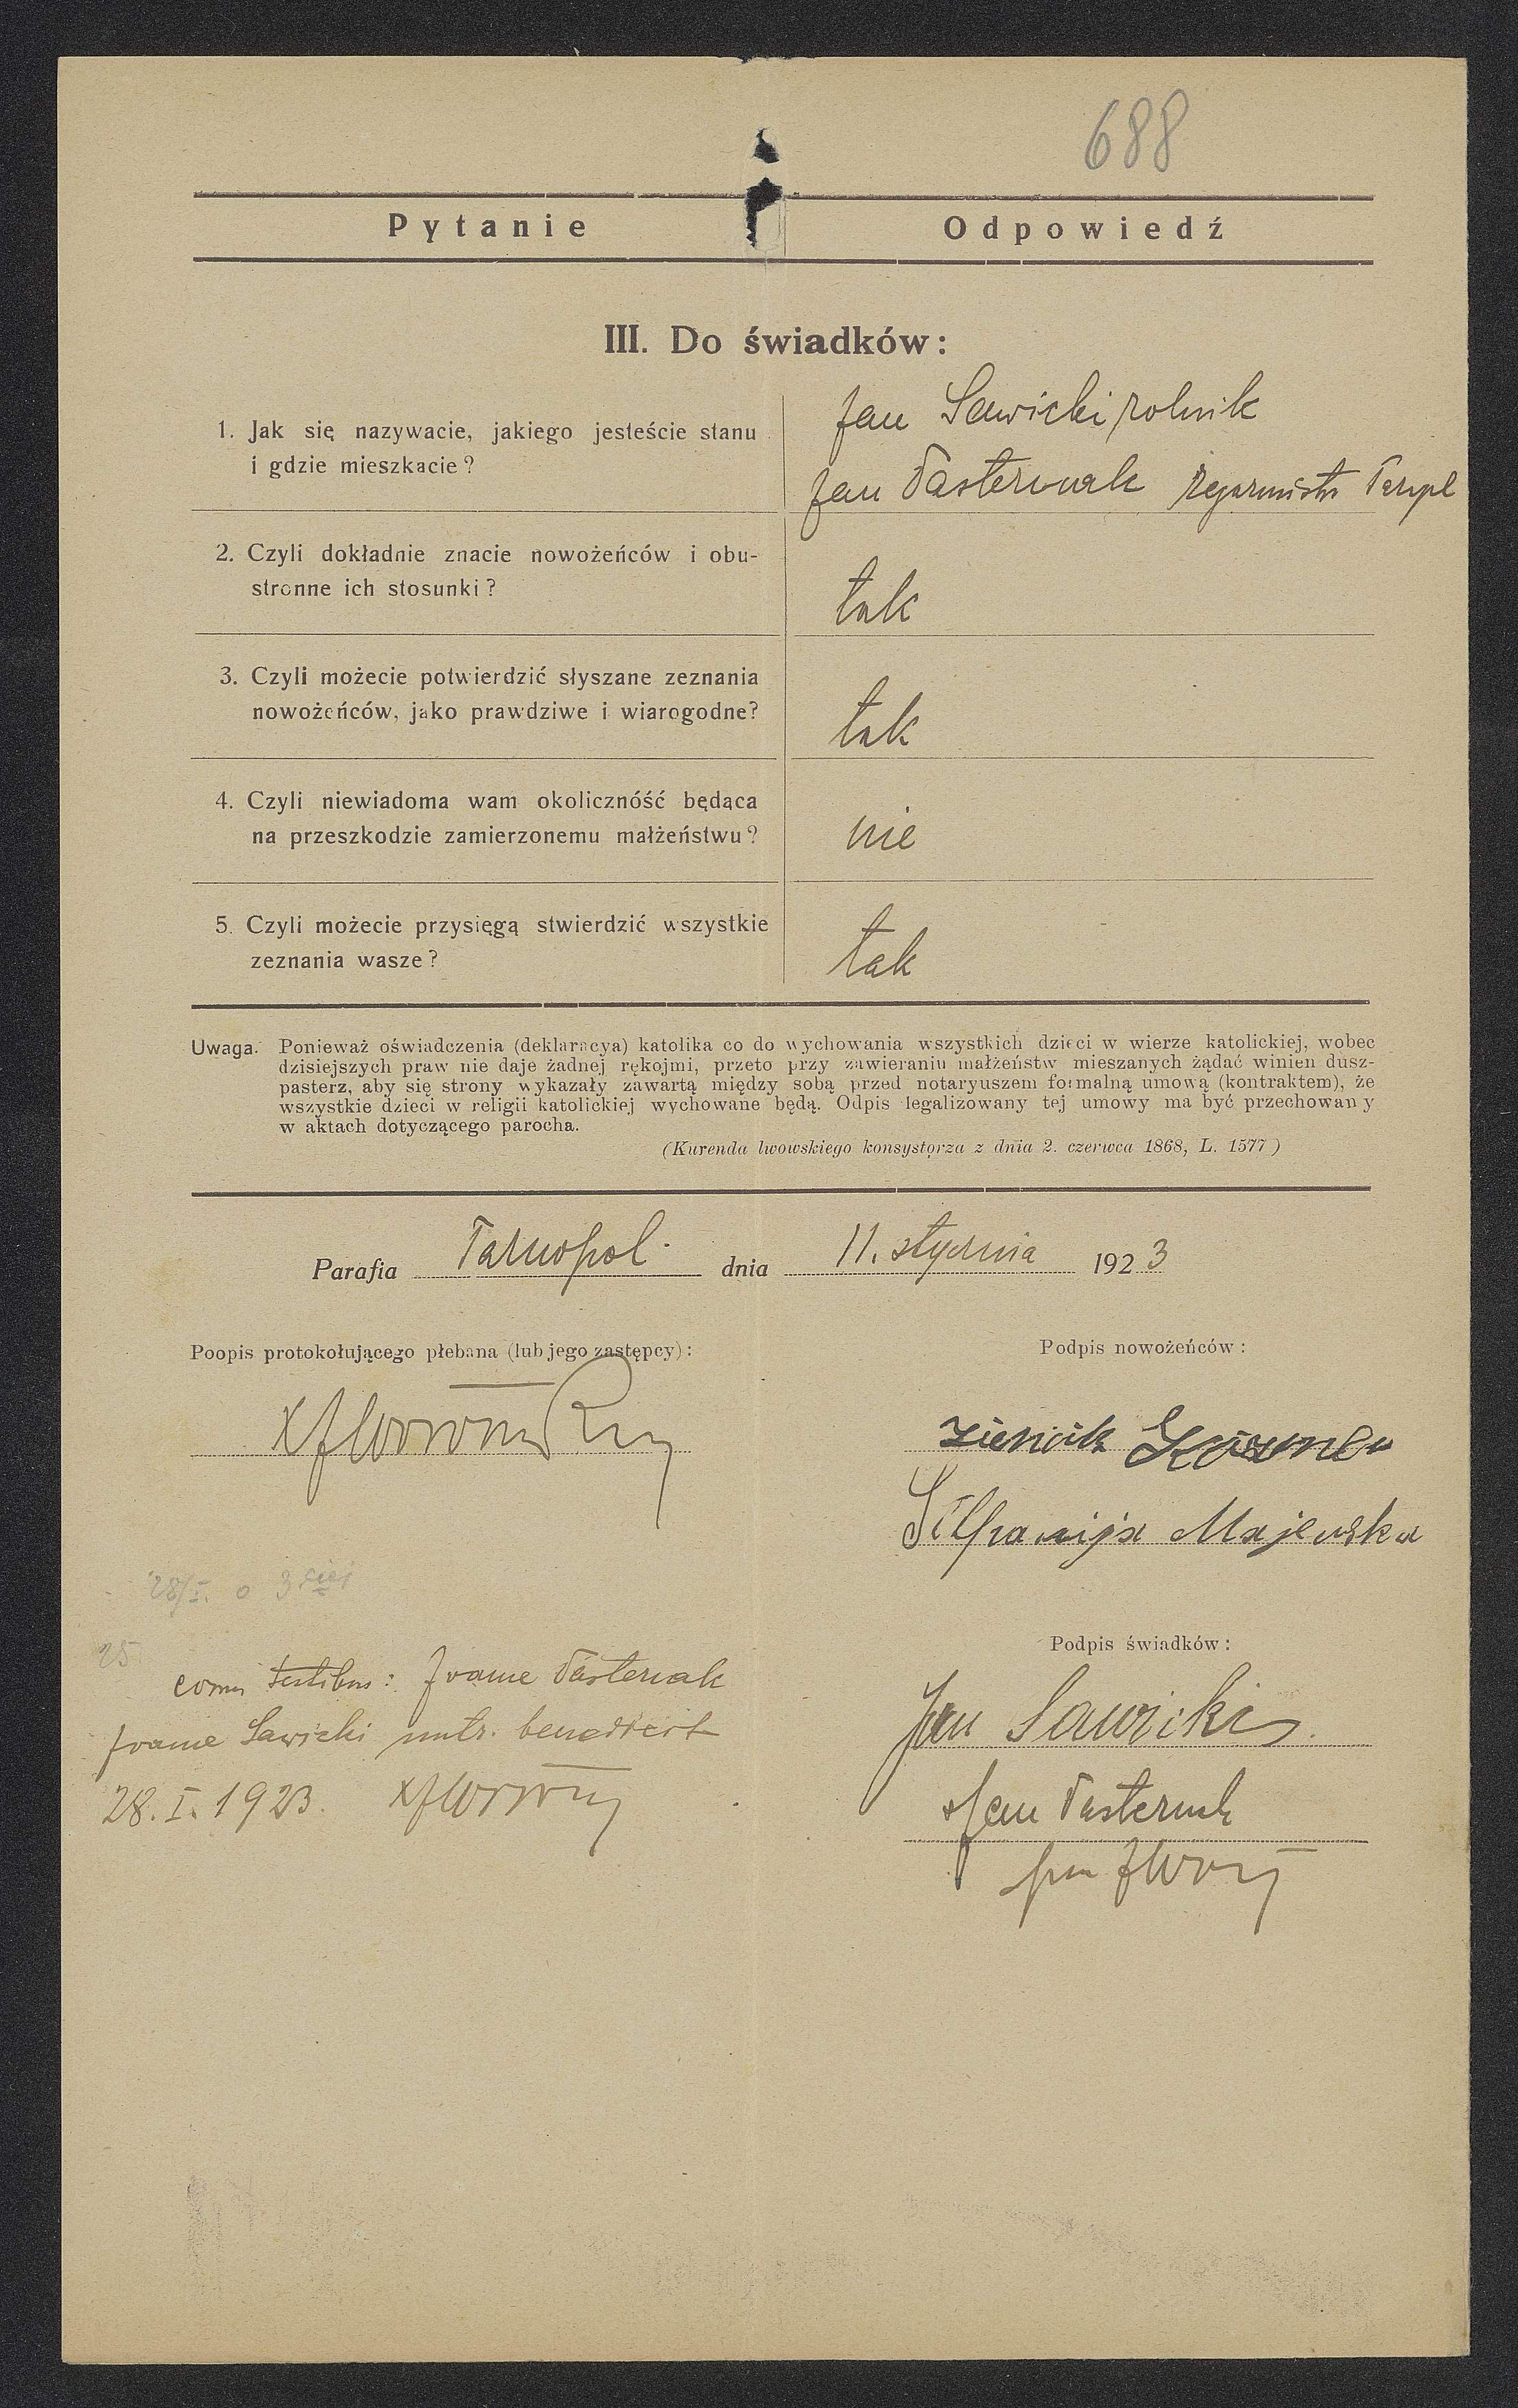 688
Pytanie Odpowiedź
III. Do świadków:
1. Jak się nazywacie, jakiego jesteście stanu
i gdzie mieszkacie?
Jan Sawicki rolnik
Jan Pasternak zegarmistrz Tarnpl
2. Czyli dokładnie znacie nowożeńców i obu-
stronne ich stosunki?
tak
3. Czyli możecie potwierdzić słyszane zeznania
nowożeńców, jako prawdziwe i wiarogodne?
tak
4. Czyli niewiadoma wam okolicznóść będąca
na przeszkodzie zamierzonemu małżeństwu?
nie
5. Czyli możecie przysięgą stwierdzić wszystkie
zeznania wasze?
tak
Uwaga. Ponieważ oświadczenia (deklaracya) katolika co do wychowania wszystkich dzieci w wierze katolickiej, wobec
dzisiejszych praw nie daje żadnej rękojmi, przeto przy zawieraniu małżeństw mieszanych żądać winien dusz-
pasterz, aby się strony wykazały zawartą między sobą przed notaryuszem formalną umową (kontraktem), że
wszystkie dzieci w religii katolickiej wychowane będą. Odpis legalizowany tej umowy ma być przechowany
w aktach dotyczącego parocha.
(Kurenda lwowskiego konsystorza z dnia 2. czerwca 1868, L. 1577)
Parafia Tarnopol dnia 11. stycznia 1923
Poopis protokołującego plebana (lub jego zastępcy):
Podpis nowożeńców:
Majewska
28/I. o 3
25
Podpis świadków:
testibus: Joanne Pasternak
Joanne Sawicki benedicit
28. I. 1923.
Jan Sawicki
Jan Pasternak